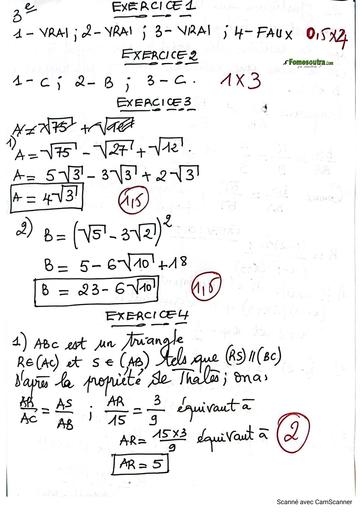 3e
EXERCICE 1
1-VRAI ; 2-VRAI ; 3-VRAI ; 4-FAUX 0,5x4
EXERCICE 2
1-C ; 2-B ; 3-C. 1x3
Fomesoutra.com
EXERCICE 3
1)
A = √75 - √27 + √12.
A = 5√3 - 3√3 + 2√3
A = 4√3 1,5
2) B = (√5 - 3√2)²
B = 5 - 6√10 + 18
B = 23 - 6√10 1,5
EXERCICE 4
1) ABC est un triangle
R∈(AC) et S∈(AB) tels que (RS)//(BC)
D'après la propiété de Thalès ; on a :
AR/AC = AS/AB ; AR/15 = 3/9 équivaut à
AR = 15x3/9 équivaut à 2
AR = 5
Scanné avec CamScanner